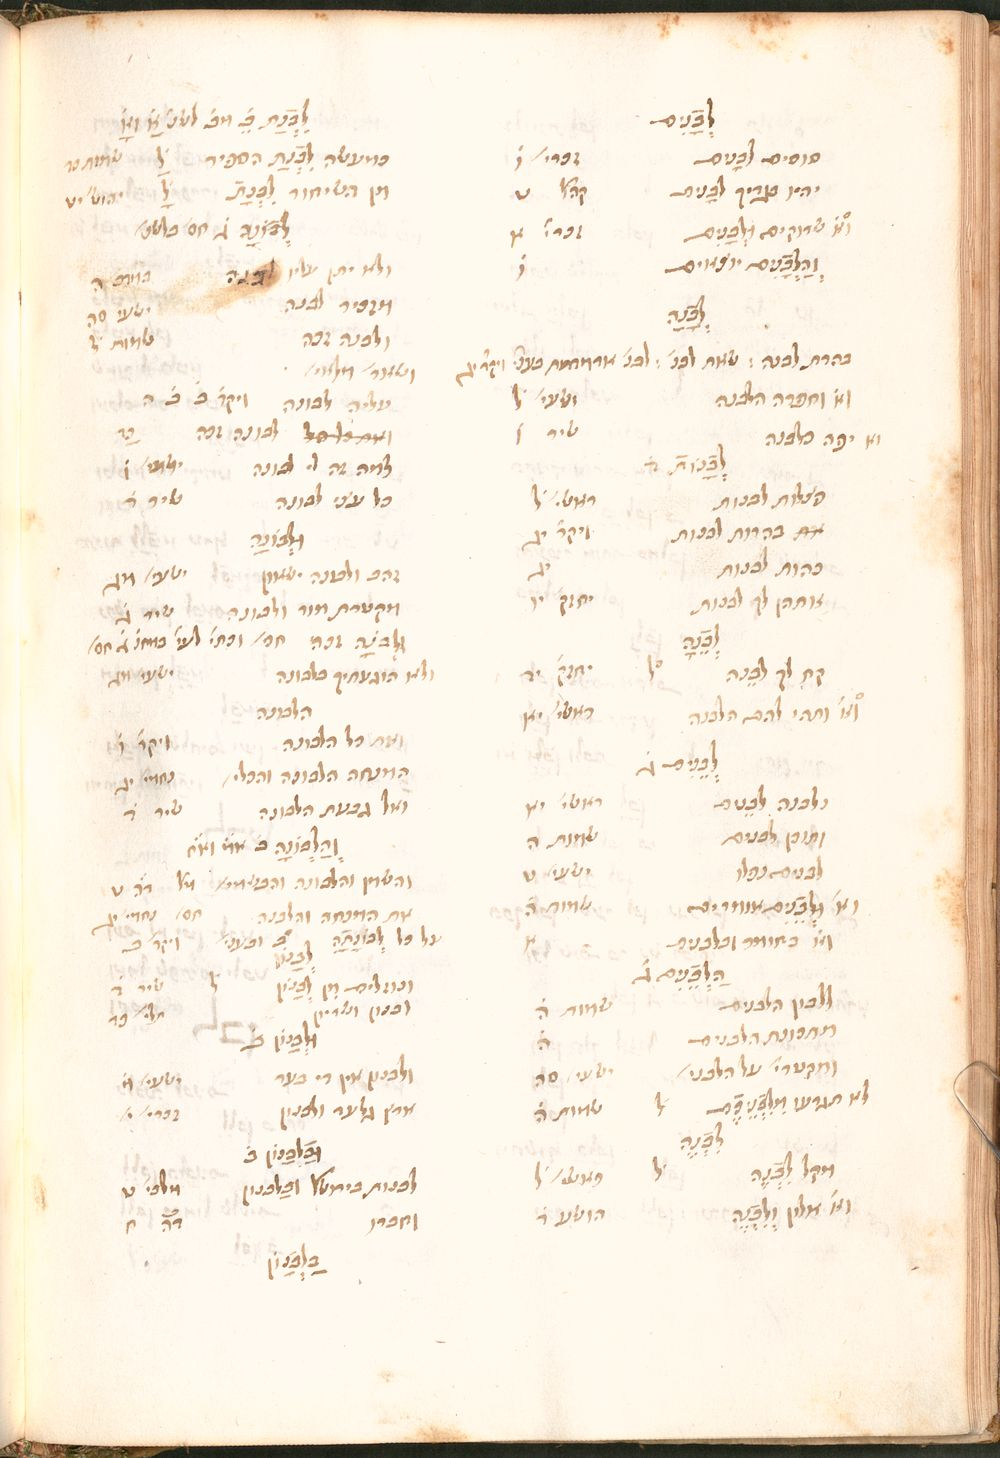 לְבָנִים
סוסים לבָנים זכרי׳ ו
יהיו בגדיך לבָנים קהל׳ ט
וא׳ שרוקים וּלְבָנִים זכרי׳ א
וְהַלְבָנִים יוצאים ו
לְבָנָה
בהרת לבנה : שאת לבנ׳ : לבנ׳ אדמדמת ויקר׳ יג
וא׳ וחפרה הלבנה ישעי׳
וא׳ יפה כלבנה שיר ו
לְבָנוֹת
פצלות לבנות ראשי׳ ל
בהרות לבנות ויקר׳ יג
כהות לבנות יג
אותהן לך לבנות יחזק׳
לְבֵנָה
קח לך לבֵנה ל׳ יחזק׳ יד
וא׳ ותהי להם הלבנה ראשי׳ יא
לְבֵנִים ג
נלבנה לבֵנים ראשי׳ יא
ותוכן לבנים שמות ה
לבנים נפלו ישעי׳ ט
וא׳ וּלְבֵנִים אומרים שמות ה
וא׳ בחומר ובלבנים א
הַלְבֵנִים ג
ללבון הלבנים שמות ה
מתכונת הלבנים ה
ומקטרי׳ על הלבני׳ ישעי׳ סה
לא תגרעו מִלִּבְנֵיכֶם ל׳ שמות ה
לִבְנֶה
מקל לִבְנֶה ל׳ ראשי׳ ל
וא׳ אלון וְלִבְנֶה הושע ד
לִבְנַת ב׳
כמעשה לִבְנַת הספיר ל׳ שמות כד
מן השיחור לִבְנָת ל׳ יהוש׳ יט
לְבֹנָה ג חס׳ בלשנ׳
ולא יתן עליו לבנה במדב׳ ה
מזכיר לבנה ישעי׳
ולבנה זכה שמות ל
ושאר׳ מלאי׳
עליה לבונה ויקר׳ ב׳ ב׳ ה
לבונה זכה כד
למה זה לי לבונה ירמי׳ ו
כל עצי לבונה שיר ד
וּלְבוֹנָה
זהב ולבונה ישאון ישעי׳
מקטרת מור ולבונה שיר ג
וּלְבֹנָה זכה חס׳
ולא הוגעתיך בלבונה ישעי׳ מג
הלבונה
ואת כל הלבונה ויקר׳ ו
המנחה הלבונה והכלי׳ נחמי׳ יג
ואל גבעת הלבונה שיר ד
וְהַלְּבוֹנָה ב׳
והשמן והלבונה והבשמי׳ ט
את המנחה והלבנה חס׳ נחמי׳ יג
על כל לְבוֹנָתָהּ ב׳ ובעני׳ ויקר׳ ב
לְבָנוֹן
ונוזלים מן לְבָנוֹן ל׳ שיר ד
לבנון ושריון תלי׳ כט
וּלְבָנוֹן ב׳
ולבנון אין די בער ישעי׳ מ
ארץ גלעד ולבנון זכרי׳ י
וּבַלְּבָנוֹן ב׳
לבנות בירושל׳ ובלבנון מלכי׳ ט
וחברו דה׳ ח
בַּלְּבָנוֹן